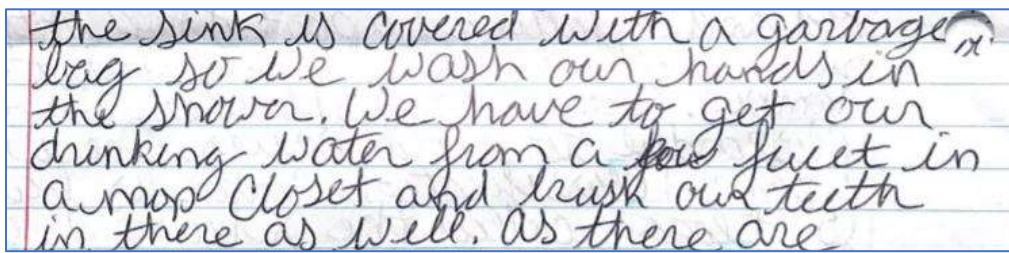 the sink is covered with a garbage
bag so we wash our hands in
the shower. We have to get our
drinking water from a fucet in
a mop closet and brush our teeth
in there as well. as there are